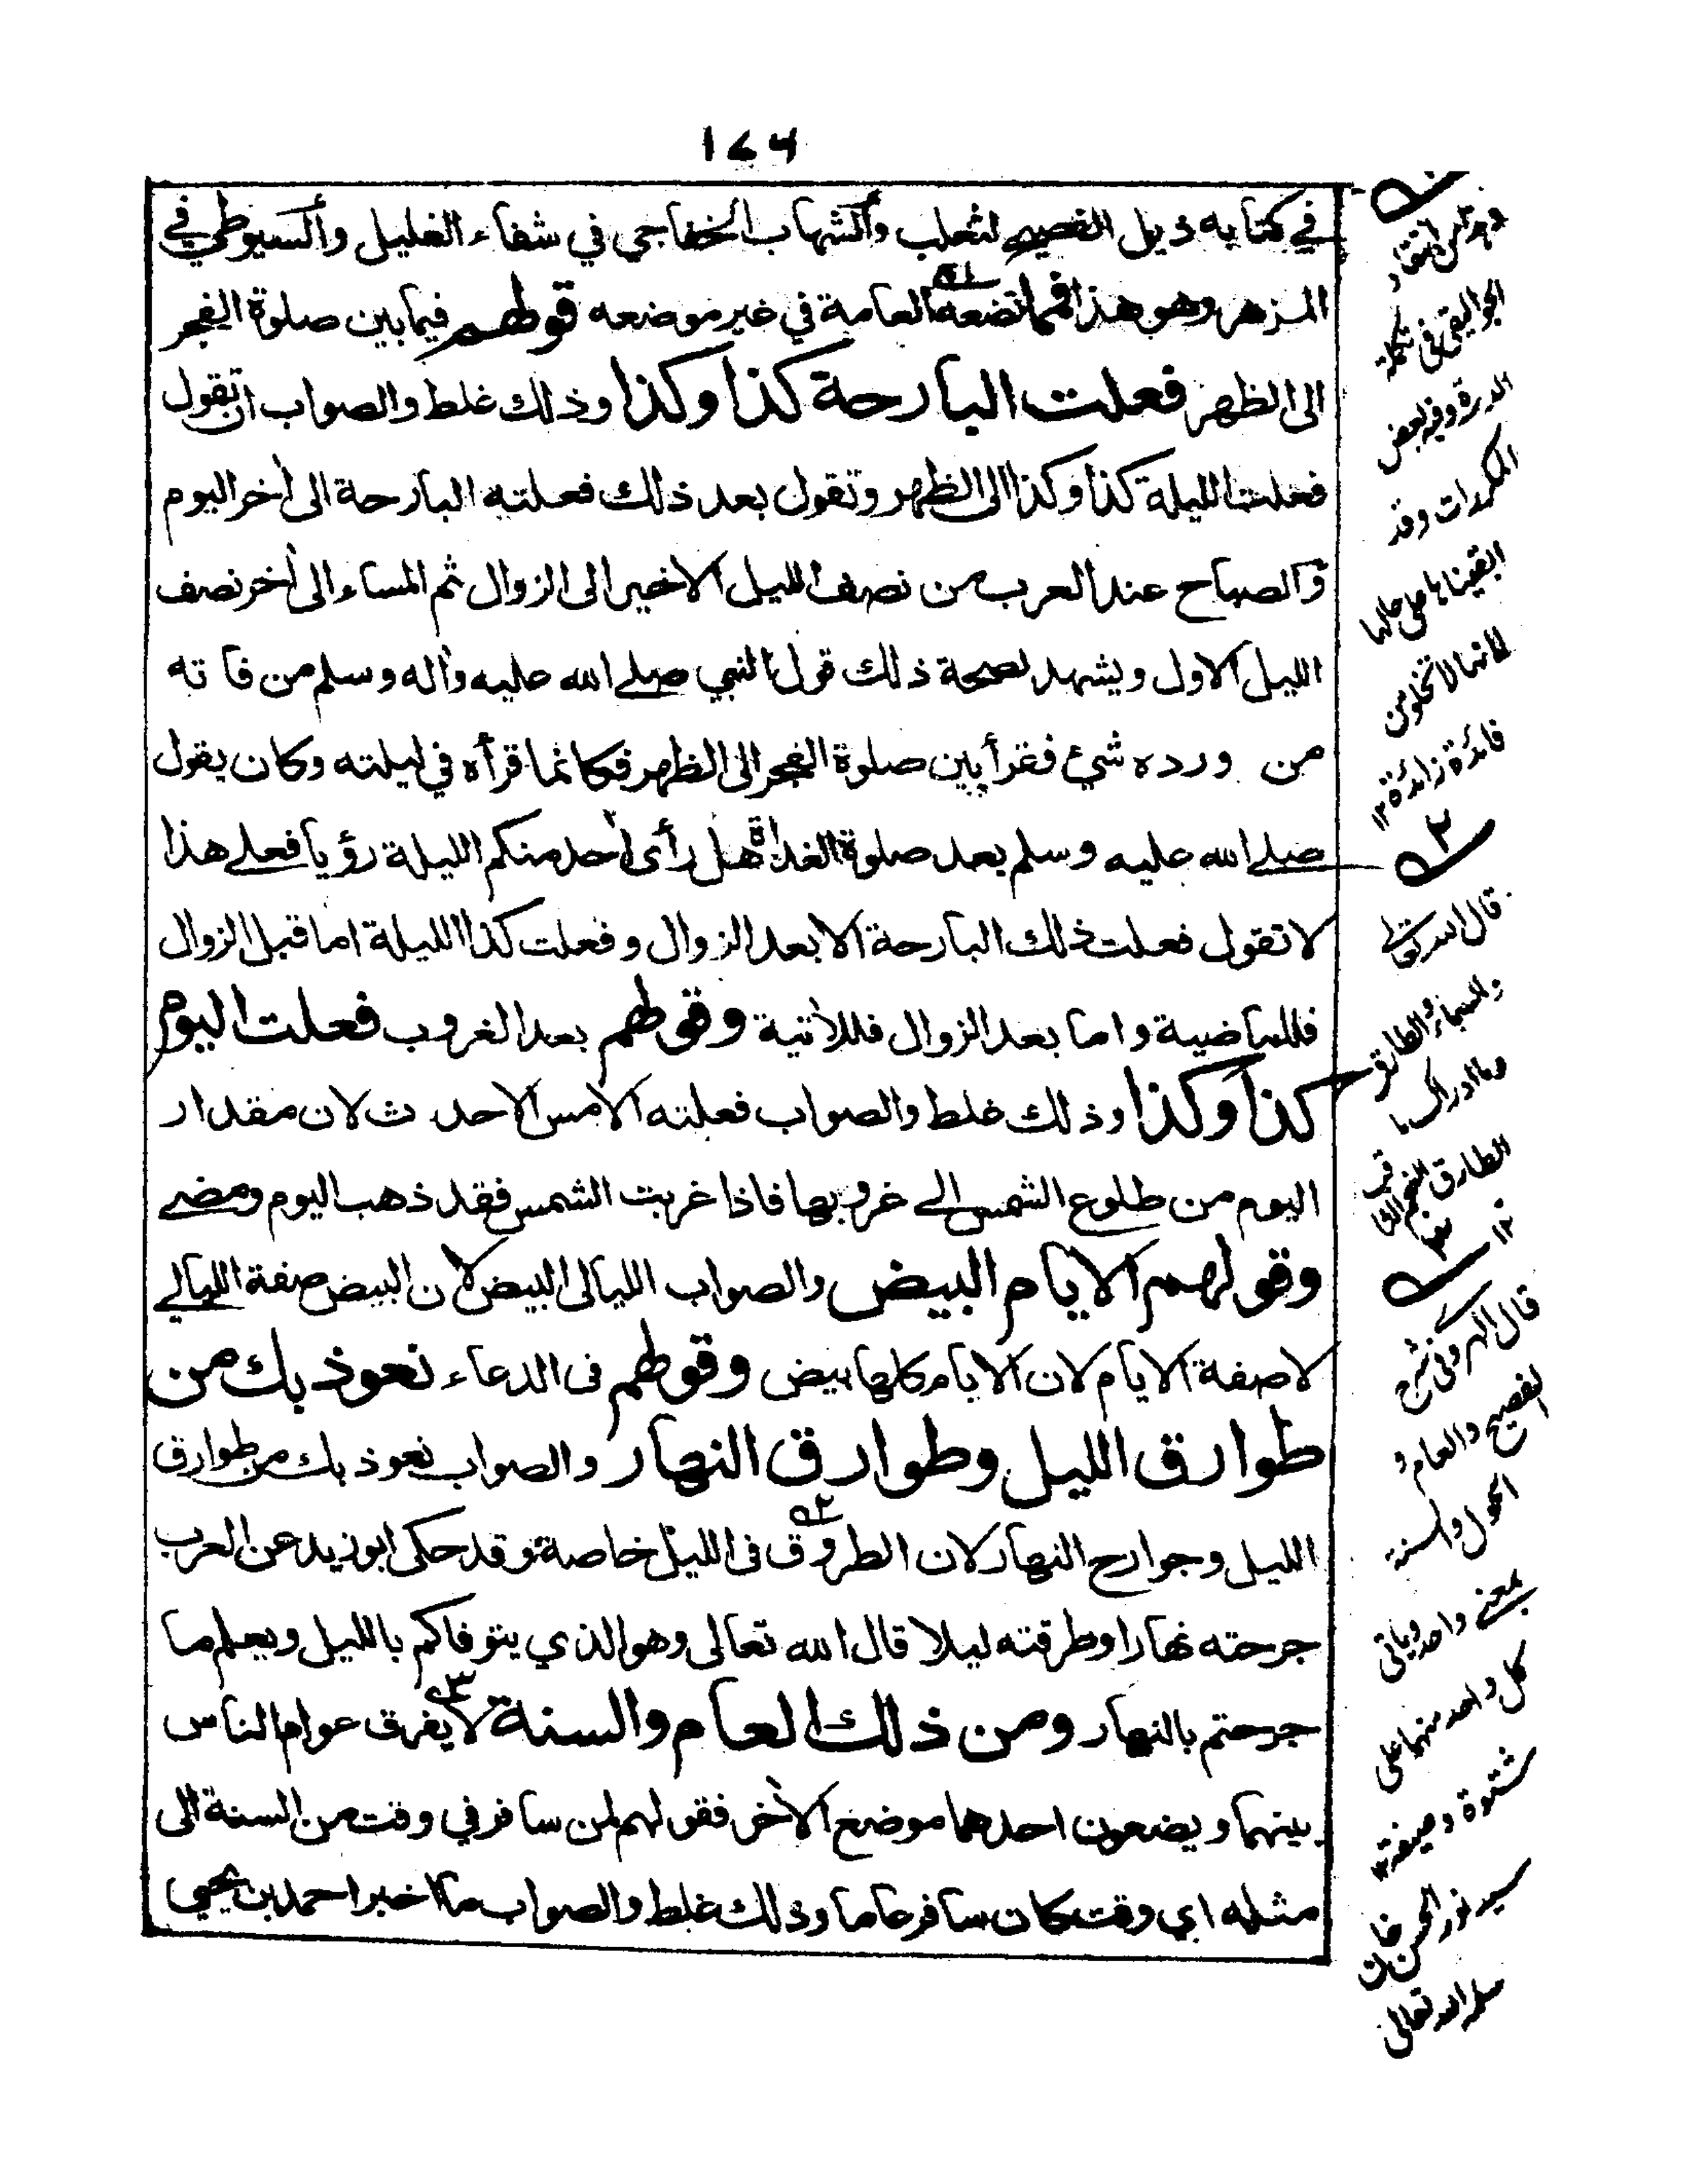 ١٧٦
في كتابه ذيل الفصيح لثعلب والشهاب الخفاجي في شفاء الغليل والسيوطي في
المزهر وهو هذا فمما تضعه العامة في غير موضعه قولهم فيما بين صلوة الفجر
الى الظهر فعلت البارحة كذا وكذا وذلك غلط والصواب ان تقول
فعلت الليلة كذا وكذا الى الظهر وتقول بعد ذلك فعلته البارحة الى أخر اليوم
والصباح عند العرب من نصف الليل الاخير الى الزوال ثم المساء الى أخر نصف
الليل الاول ويشهد لصحة ذلك قول النبي صلے الله عليه وأله وسلم من فاته
من ورده شيء فقرأ بين صلوة الفجر الى الظهر فكانما قرأه في ليلته وكان يقول
صلے الله عليه وسلم بعد صلوة الغداة هل رأى أحد منكم الليلة رؤيا فعلے هذا
لا تقول فعلت ذلك البارحة الا بعد الزوال وفعلت كذا الليلة اما قبل الزوال
فللماضية واما بعد الزوال فللأتية وقولهم بعد الغروب فعلت اليوم
كذا وكذا وذلك غلط والصواب فعلته الامس الاحدث لان مقدار
اليوم من طلوع الشمس الے غروبها فاذا غربت الشمس فقد ذهب اليوم ومضے
وقولهم الايام البيض والصواب الليالى البيض لان البيض صفة الليالے
لا صفة الايام لان الايام كلها بيض وقولهم فى الدعاء نعوذ بك من
طوارق الليل وطوارق النهار والصواب نعوذ بك من طوارق
الليل وجوارح النهار لان الطروق فى الليل خاصة وقد حكى ابو زيد عن العرب
جرحته نهارا وطرقته ليلا قال الله تعالى وهو الذي يتوفاكم بالليل ويعلم ما
جرحتم بالنهار ومن ذلك العام والسنة لا يفرق عوام الناس
بينهما ويضعون احدهما موضع الأخر فقولهم لمن سافر في وقت من السنة الى
مثله اي وقت كان سافر عاما وذلك غلط والصواب ما اخبر احمد بن يحيى
الجواليقى فى تكملة
الدرة وفيه بعض
المكررات وقد
ابقيناها على حالها
لانها لا تخلو من
فائدة زائدة ١٢
٢
قال الله تعالے
والسماء والطارق
وما ادراك ما
الطارق النجم الثاقب
١٢
٣
قال الهروى فى شرح
الفصيح والعام و
الحول والسنة
بمعنے واحد وياتى
كل واحد منهما على
شتوة وصيفة ١٢
سيد نور الحسن خان
سلمه الله تعالى